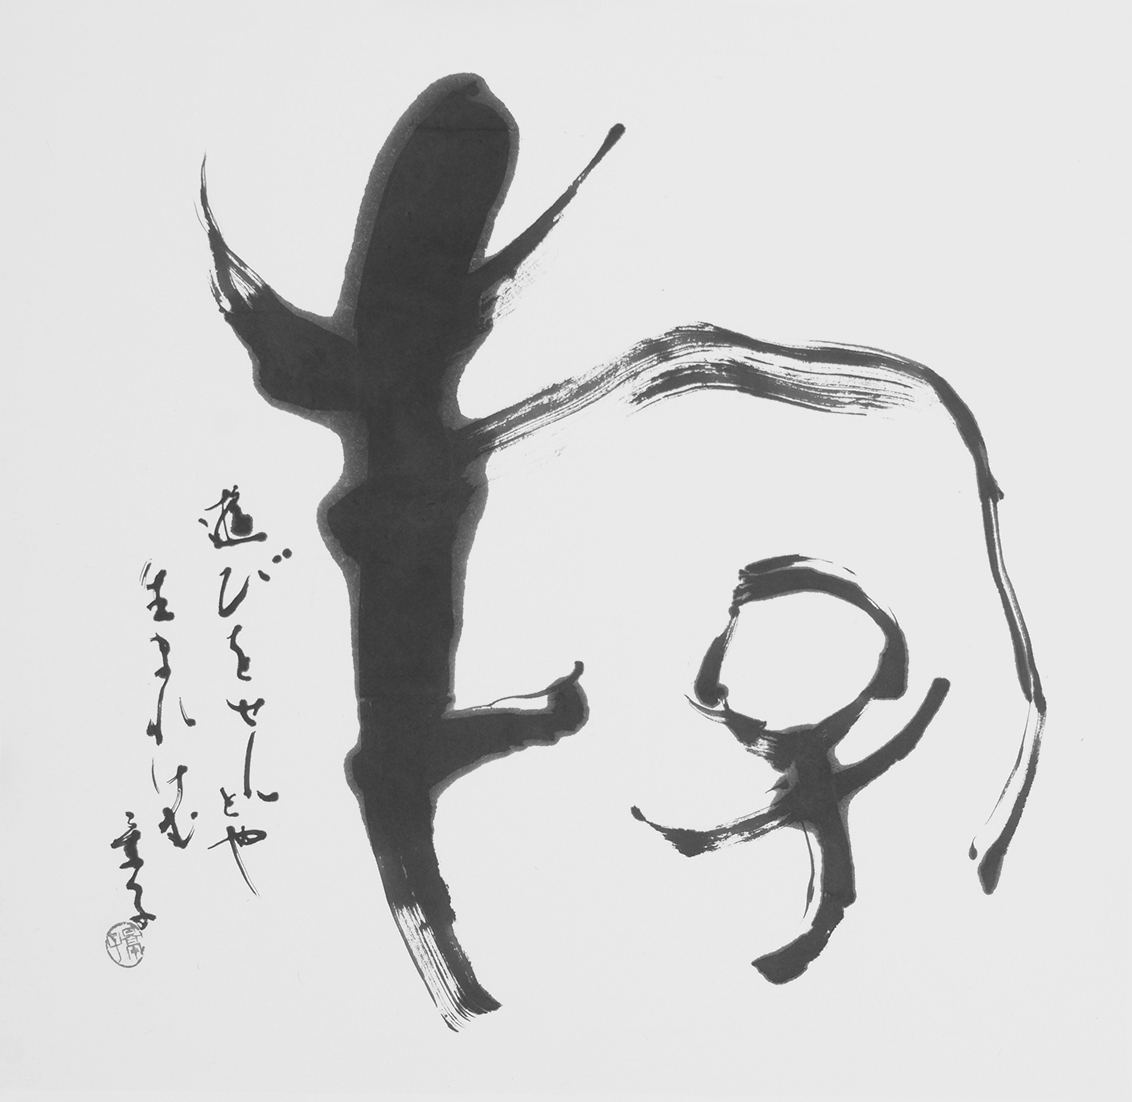 斿
遊びをせんとや
生まれけむ